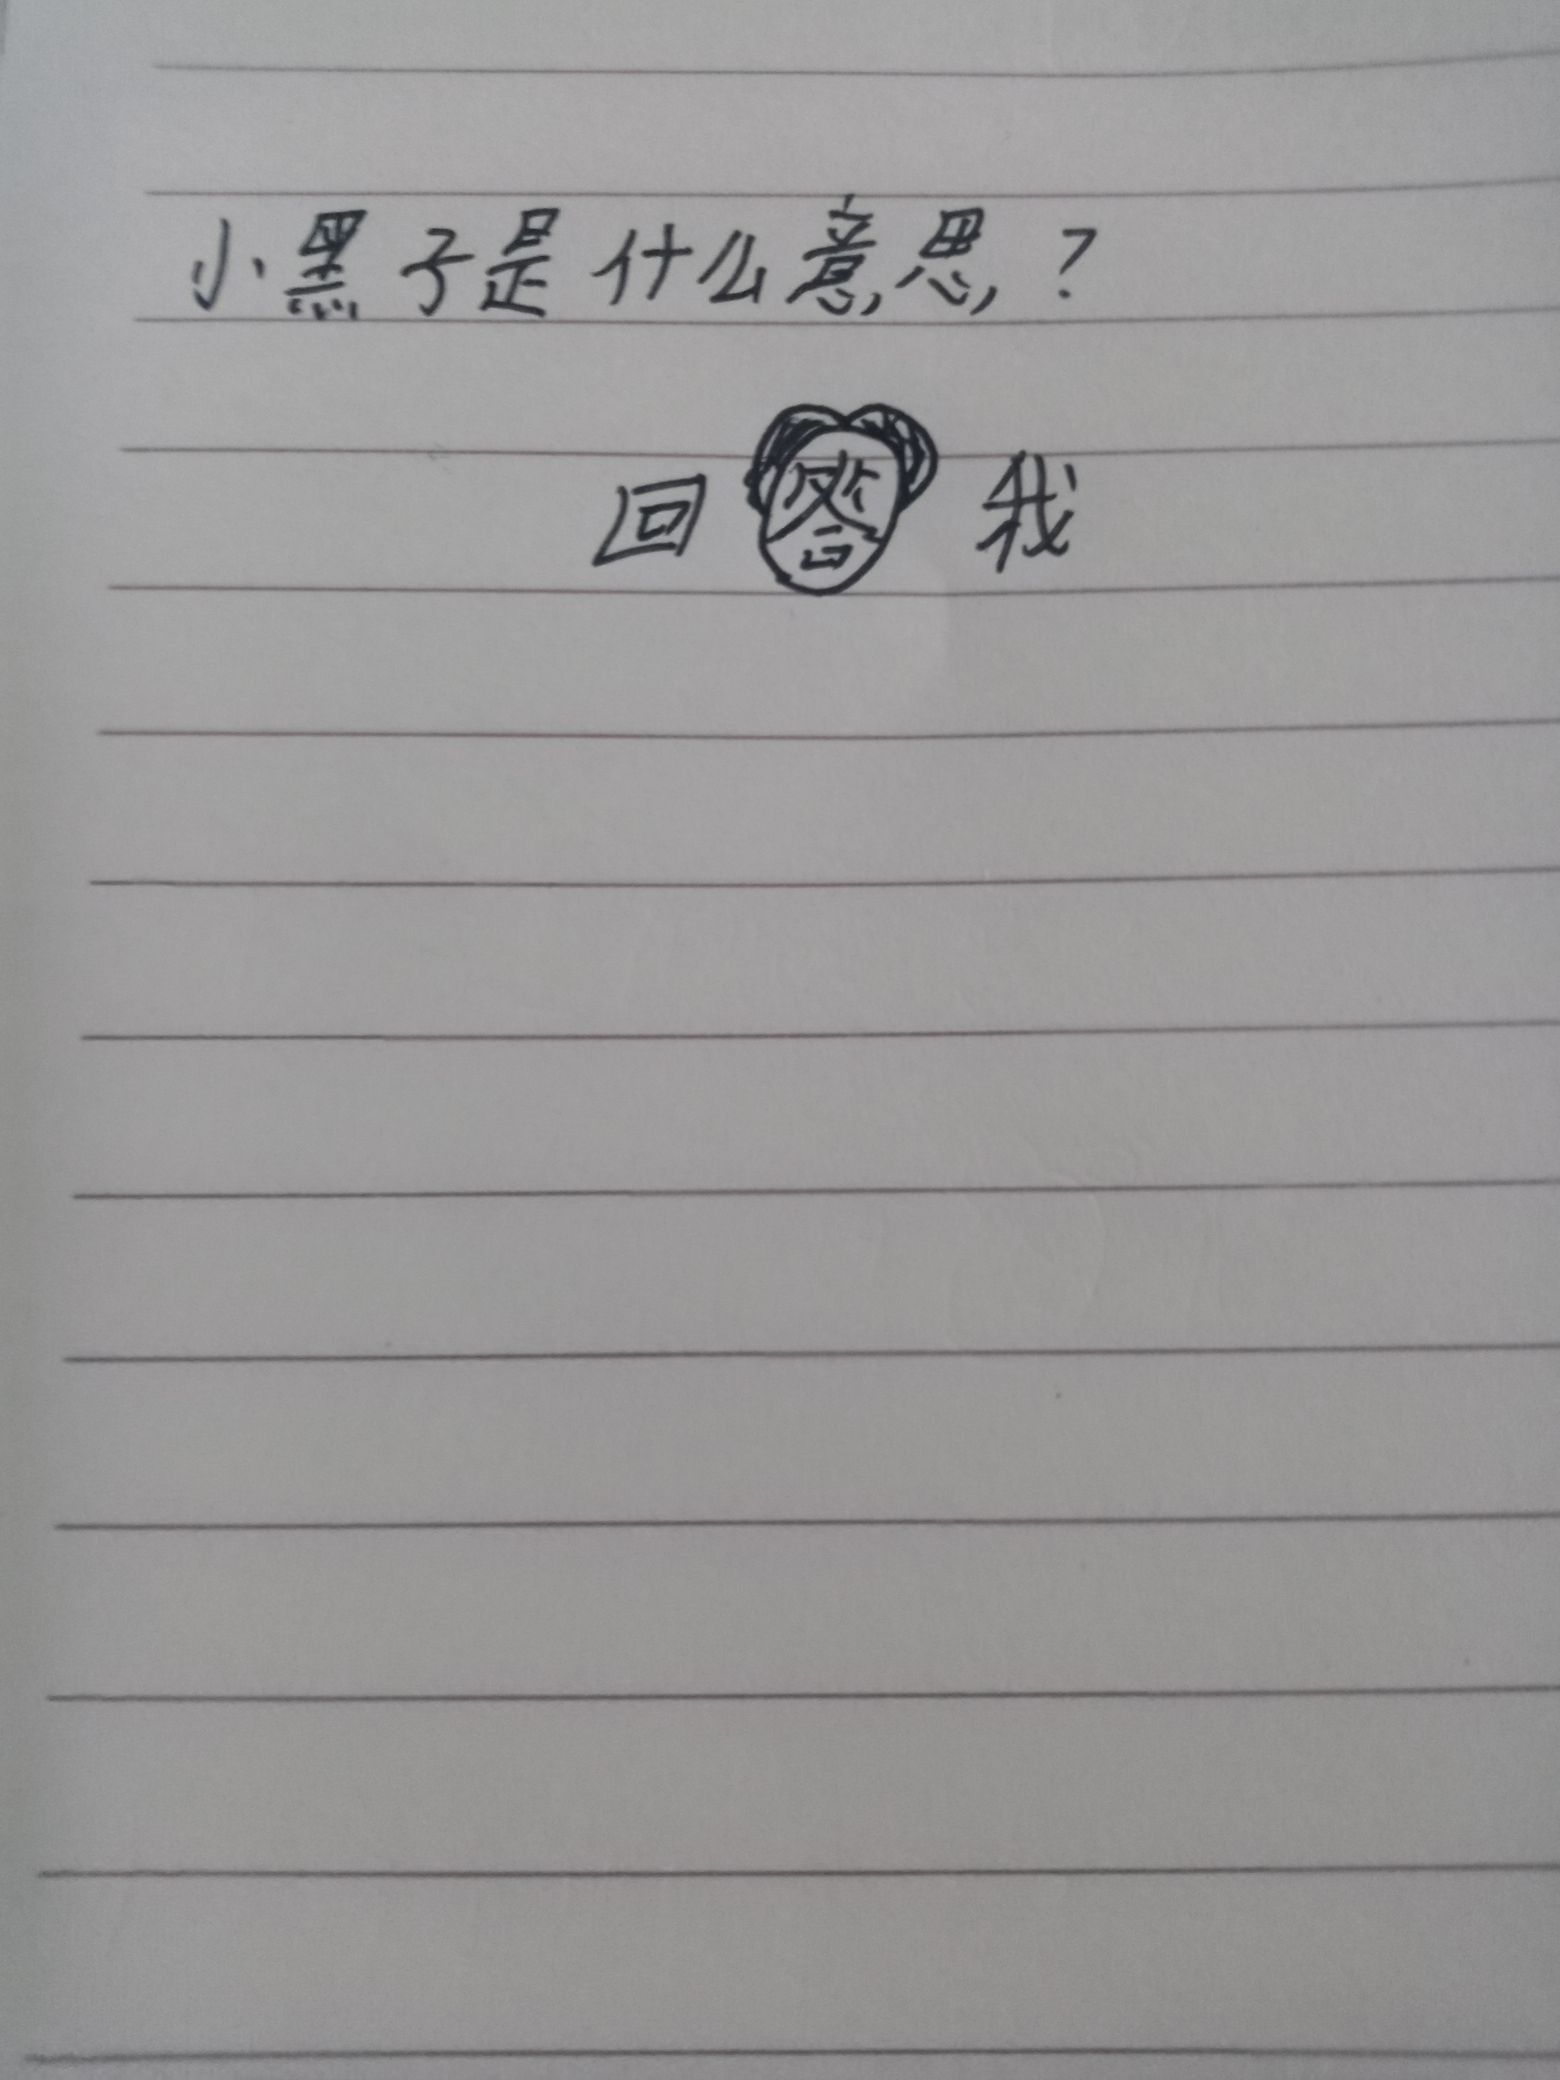 小黑子是什么意思?
回答我